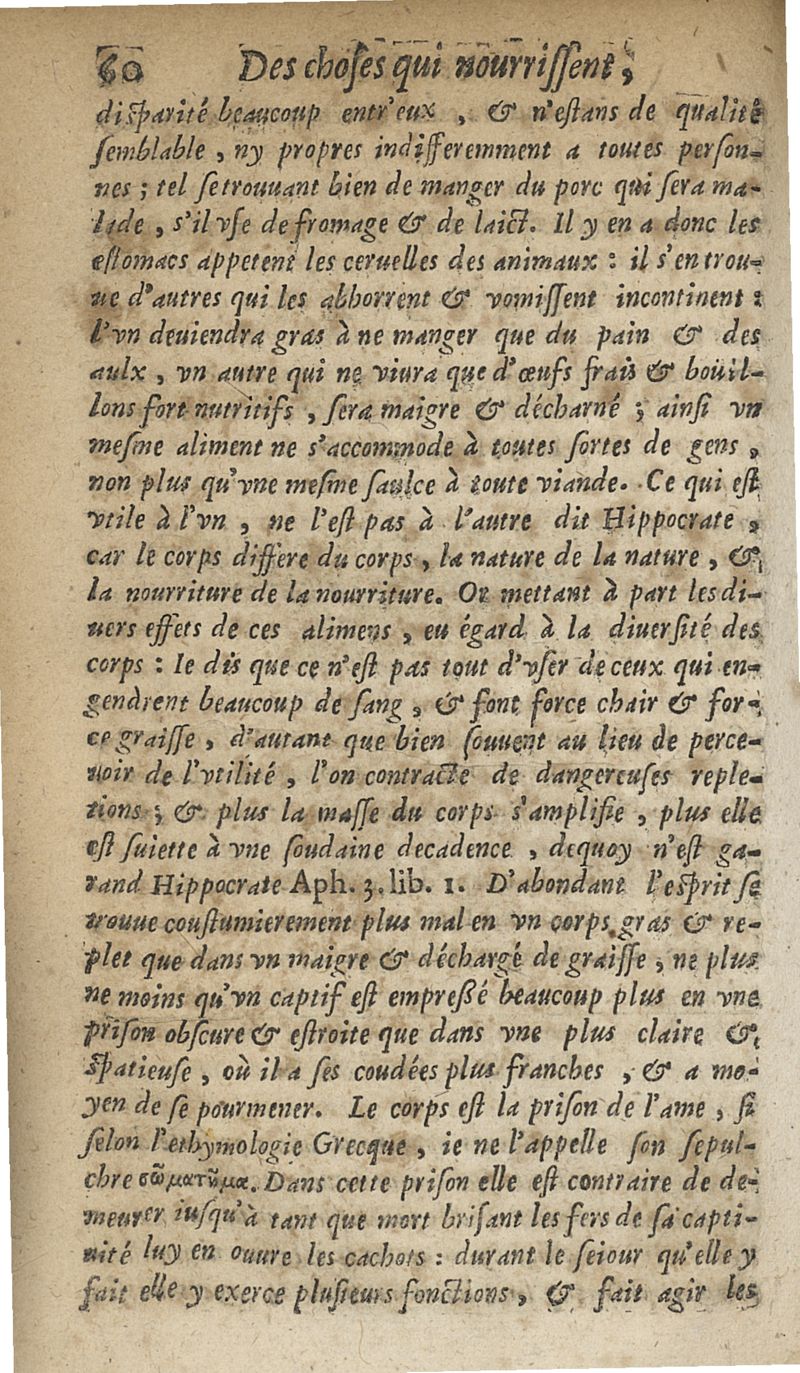 60 Des choſes qui nourriſſent,
diſparité beaucoup entr'eux , & n'eſtans de qualité
ſemblable , ny propres indifferemment a toutes perſon-
nes ; tel ſe trouuant bien de manger du porc qui ſera ma-
lade , s'il vſe de fromage & de laict. Il y en a donc les
eſtomacs appetent les ceruelles des animaux : il s'en trou-
ue d'autres qui les abhorrent & vomiſſent incontinent :
l'vn deuiendra gras à ne manger que du pain & des
aulx , vn autre qui ne viura que d'œufs frais & boüil-
lons fort nutritifs , ſera maigre & décharné ; ainſi vn
meſme aliment ne s'accommode à toutes ſortes de gens ,
non plus qu'vne meſme ſaulce à toute viande. Ce qui eſt
vtile à l'vn , ne l'eſt pas à l'autre dit Hippocrate ,
car le corps differe du corps , la nature de la nature , &
la nourriture de la nourriture. Or mettant à part les di-
uers effets de ces alimens , eu égard à la diuerſité des
corps : Ie dis que ce n'eſt pas tout d'vſer de ceux qui en-
gendrent beaucoup de ſang , & font force chair & for-
ce graiſſe , d'autant que bien ſouuent au lieu de perce-
uoir de l'vtilité , l'on contracte de dangereuſes reple-
tions ; & plus la maſſe du corps s'amplifie , plus elle
eſt ſuiette à vne ſoudaine decadence , dequoy n'eſt ga-
rand Hippocrate Aph. 3. lib. 1. D'abondant l'eſprit ſe
trouue couſtumierement plus mal en vn corps gras & re-
plet que dans vn maigre & déchargé de graiſſe , ne plus
ne moins qu'vn captif eſt empreßé beaucoup plus en vne
priſon obſcure & eſtroite que dans vne plus claire &
ſpatieuſe , où il a ſes coudées plus franches , & a mo-
yen de ſe pourmener. Le corps eſt la priſon de l'ame , ſi
ſelon l'ethymologie Grecque , ie ne l'appelle ſon ſepul-
chre σῶματῦμα. Dans cette priſon elle eſt contraire de de-
meurer iuſqu'à tant que mort briſant les fers de ſa capti-
uité luy en ouure les cachots : durant le ſeiour qu'elle y
fait elle y exerce pluſieurs fonctions , & fait agir les